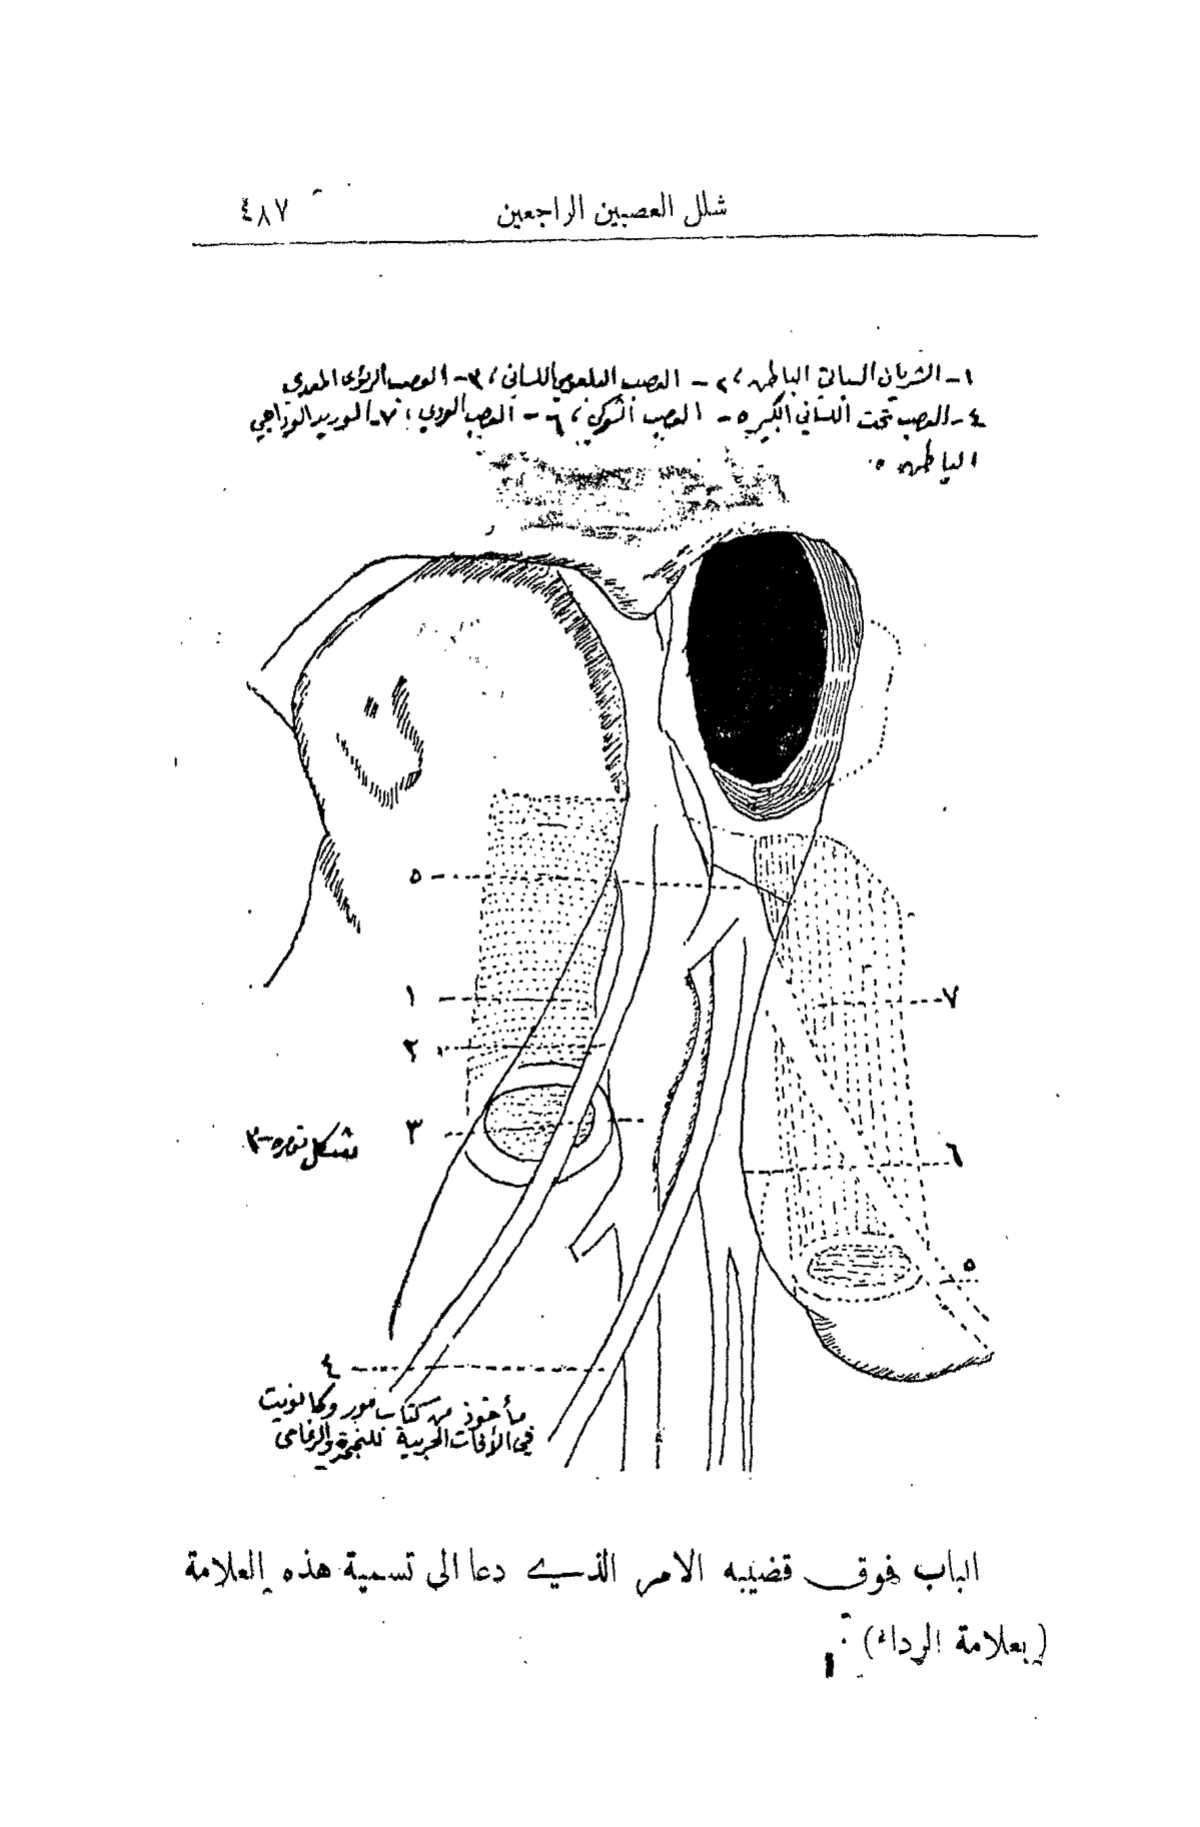 شلل العصبين الراجعين ٤٨٧
١- الشريان السباتي الباطن ٢- العصب البلعومي اللساني ٣- العصب الرئوي المعدي
٤- العصب تحت اللساني الكبير ٥- العصب الشوكي ٦- العصب الودي ٧- الوريد الوداجي
الباطن
٥
١
٧
٢
٣
شكل نمره -٣
٦
٥
٤
مأخوذ من كتاب مور وكانويت
في الآفات الحربية للنجمة والرغامى
الباب فوق قضيبه الامر الذي دعا الى تسمية هذه العلامة
(بعلامة الرداء)